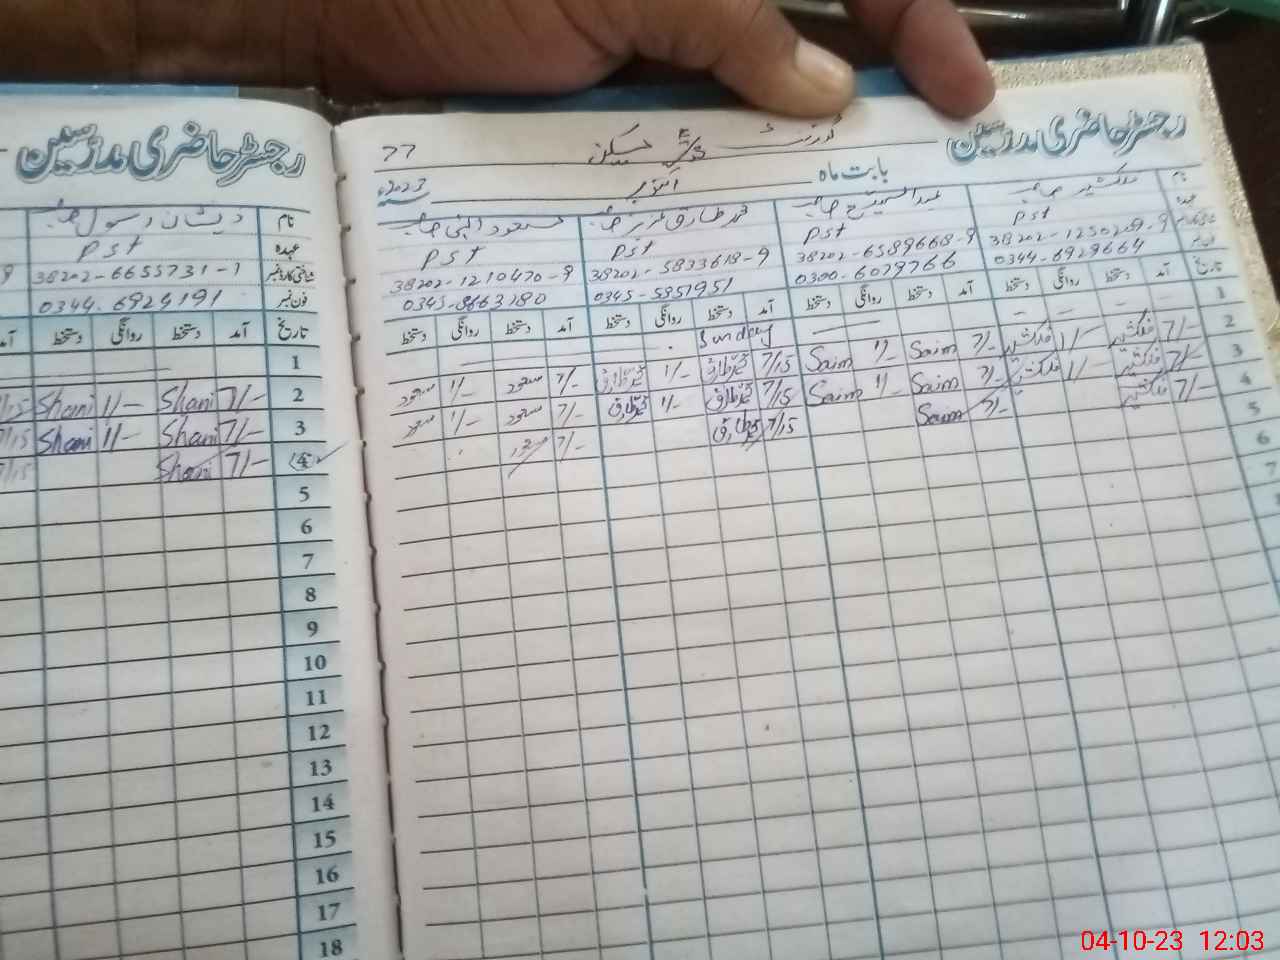 رجسٹر حاضری مدرسین
رجسٹر حاضری مدرسین
77
بابت ماہ
اکتوبر
2023ء
نام
ذیشان رسول
عہدہ
PST
شناختی کارڈ نمبر
38202-6655731-1
فون نمبر
0344-6924191
تاریخ آمد دستخط روانگی دستخط آمد
1
2 7/- Shani 1/- Shani 7/15
3 7/- Shani 1/- Shani 7/15
4 7/- Shani 7/15
5
6
7
8
9
10
11
12
13
14
15
16
17
18
نام
محمد طارق عزیز
مسعود الہی
عہدہ
PST PST PST PST
38202-1250209-9 38202-6589668-9 38202-5833618-9 38202-1210470-9
0344-6929664 0300-6079766 0345-5851951 0345-8663280
تاریخ آمد دستخط روانگی دستخط آمد دستخط روانگی دستخط آمد دستخط روانگی دستخط آمد دستخط روانگی دستخط
1 Sunday
2 7/- 1/- 7/- Saim 1/- Saim 7/15 محمد طارق 1/- محمد طارق 7/- مسعود 1/- مسعود
3 7/- 1/- 7/- Saim 1/- Saim 7/15 محمد طارق 1/- محمد طارق 7/- مسعود 1/- مسعود
4 7/- 7/- Saim 7/15 محمد طارق 7/- مسعود
5
6
7
04-10-23 12:03